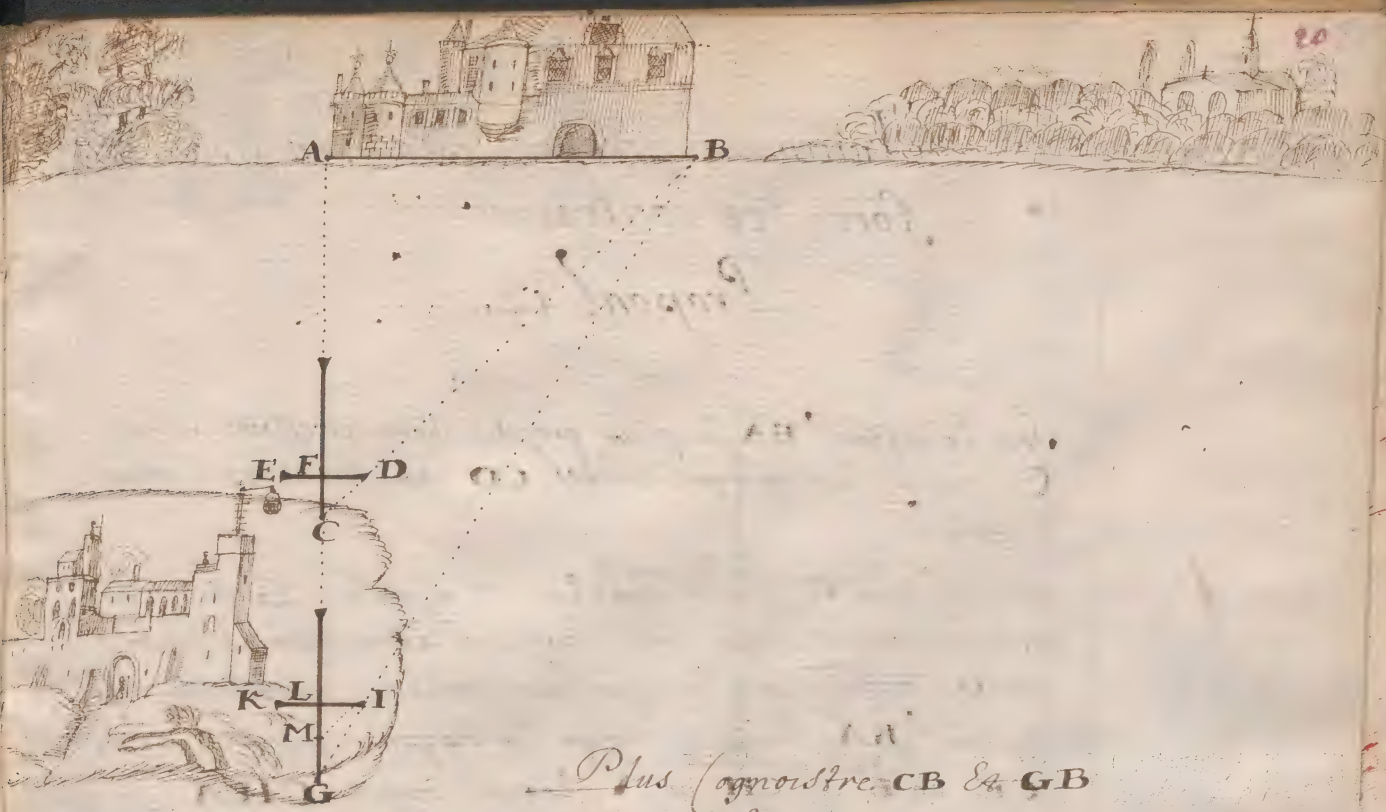 20
A B
E F D
C
K L I
M
G
Plus Cognoistre CB Et GB